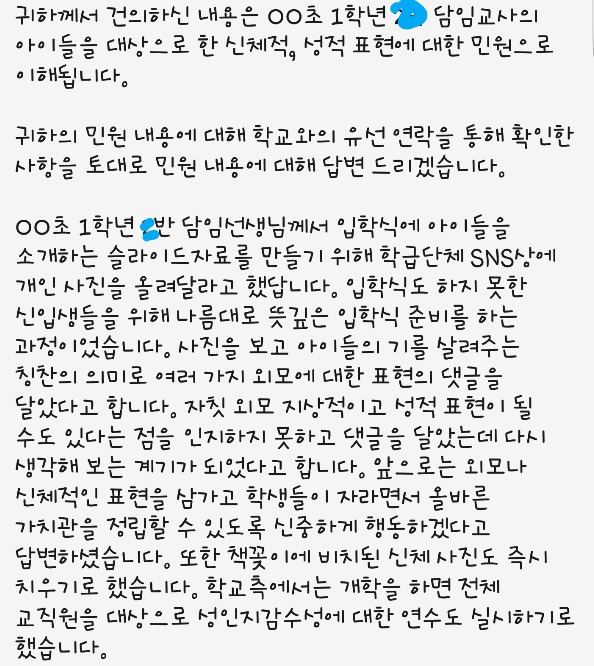 귀하께서 건의하신 내용은 OO초 1학년 담임교사의
아이들을 대상으로 한 신체적, 성적 표현에 대한 민원으로
이해됩니다.
귀하의 민원 내용에 대해 학교와의 유선 연락을 통해 확인한
사항을 토대로 민원 내용에 대해 답변 드리겠습니다.
OO초 1학년 반 담임선생님께서 입학식에 아이들을
소개하는 슬라이드자료를 만들기 위해 학급단체 SNS상에
개인 사진을 올려달라고 했답니다. 입학식도 하지 못한
신입생들을 위해 나름대로 뜻깊은 입학식 준비를 하는
과정이었습니다. 사진을 보고 아이들의 기를 살려주는
칭찬의 의미로 여러 가지 외모에 대한 표현의 댓글을
달았다고 합니다. 자칫 외모 지상적이고 성적 표현이 될
수도 있다는 점을 인지하지 못하고 댓글을 달았는데 다시
생각해 보는 계기가 되었다고 합니다. 앞으로는 외모나
신체적인 표현을 삼가고 학생들이 자라면서 올바른
가치관을 정립할 수 있도록 신중하게 행동하겠다고
답변하셨습니다. 또한 책꽂이에 비치된 신체 사진도 즉시
치우기로 했습니다. 학교측에서는 개학을 하면 전체
교직원을 대상으로 성인지감수성에 대한 연수도 실시하기로
했습니다.